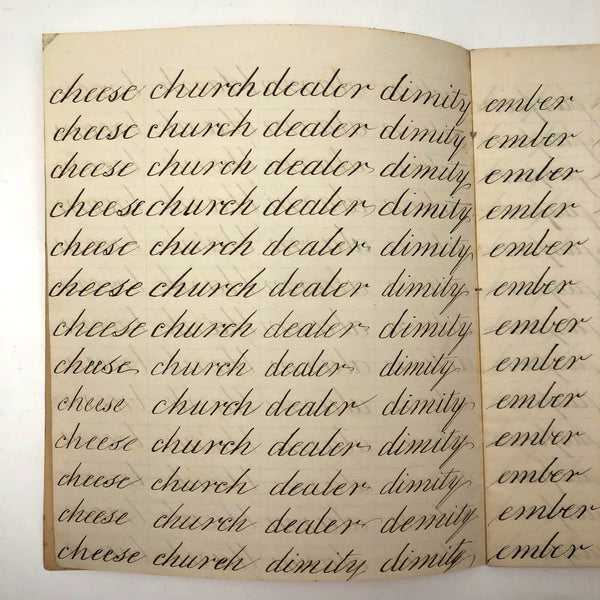 cheese church dealer dimity ember
cheese church dealer dimity ember
cheese church dealer dimity ember
cheese church dealer dimity ember
cheese church dealer dimity ember
cheese church dealer dimity ember
cheese church dealer dimity ember
cheese church dealer dimity ember
cheese church dealer dimity ember
cheese church dealer dimity ember
cheese church dealer dimity ember
cheese church dealer demity ember
cheese church dimity dimity ember